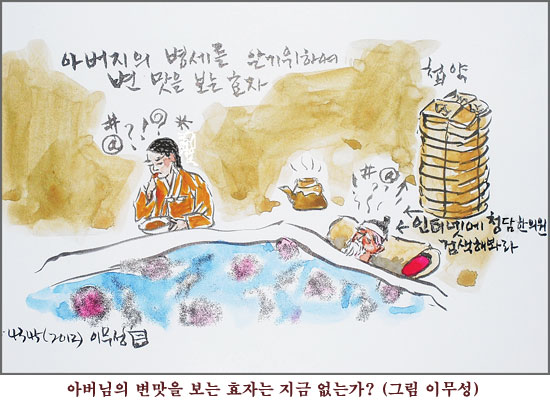 아버지의 병세를 알기위하여
변 맛을 보는 효자
#@?!?*
첩약
#@
←인터넷에 청담한의원
←검색해봐라
4345(2012) 이무성
아버님의 변맛을 보는 효자는 지금 없는가? (그림 이무성)